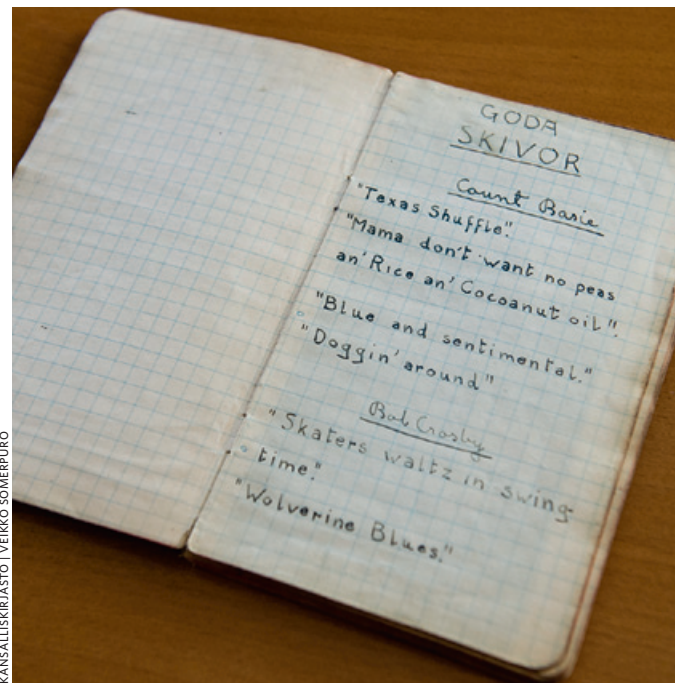 GODA
SKIVOR
Count Basie
"Texas Shuffle".
"Mama don't want no peas
an' Rice an' Cocoanut oil".
"Blue and sentimental."
"Doggin' around"
Bob Crosby
"Skaters waltz in swing
time".
"Wolverine Blues."
KANSALLISKIRJASTO | VEIKKO SOMERPURO